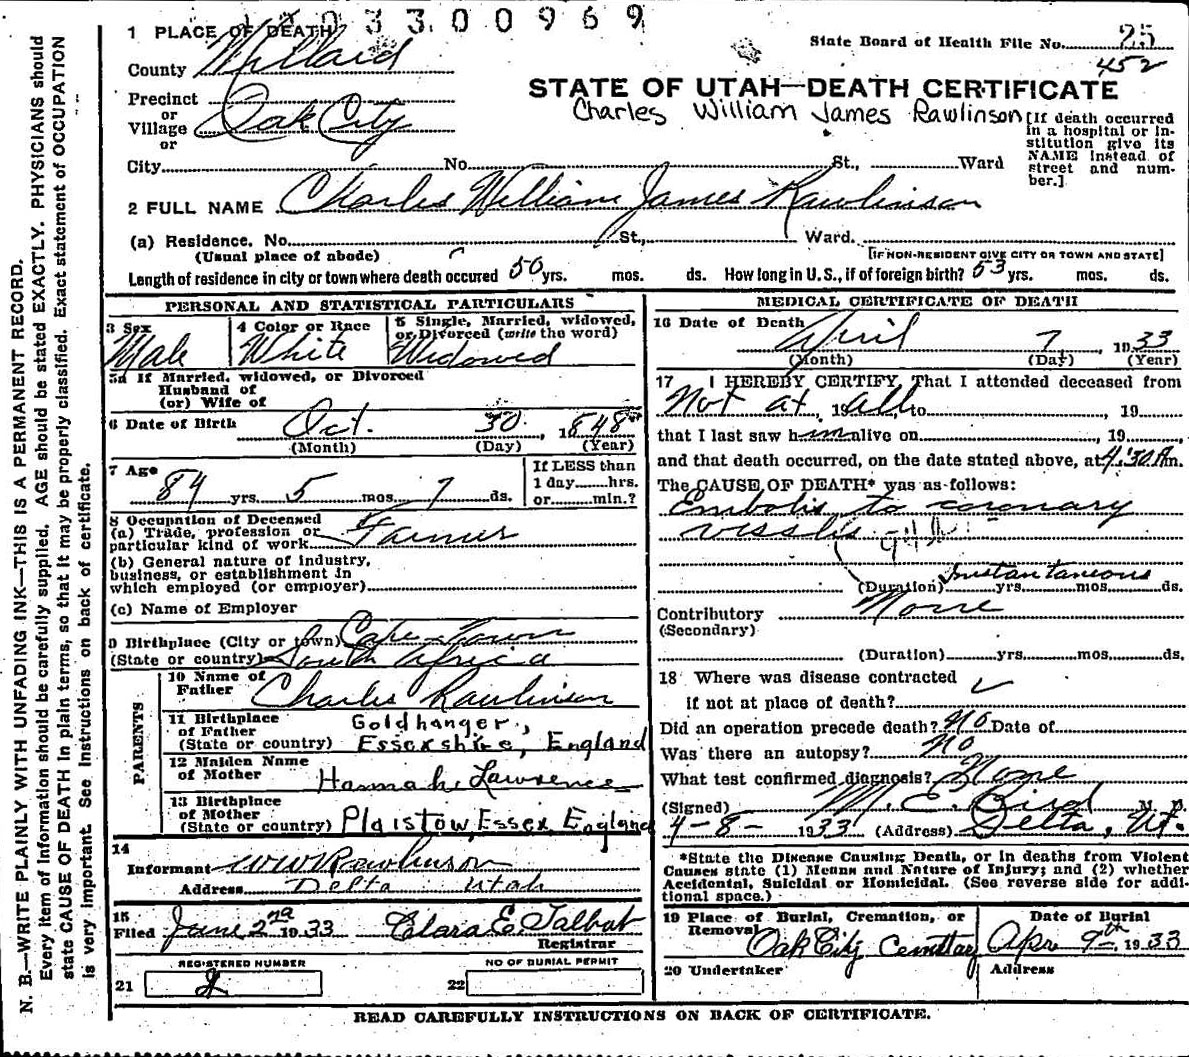 3300969
1 PLACE OF DEATH
County Millard
Precinct
or
Village Oak City
or
City No. St., Ward
State Board of Health File No. 25
452
STATE OF UTAH—DEATH CERTIFICATE
Charles William James Rawlinson
[If death occurred in a hospital or institution give its NAME instead of street and number.]
2 FULL NAME Charles William James Rawlinson
(a) Residence. No. St., Ward.
(Usual place of abode) [IF NON-RESIDENT GIVE CITY OR TOWN AND STATE]
Length of residence in city or town where death occured 50 yrs. mos. ds. How long in U.S., if of foreign birth? 53 yrs. mos. ds.
PERSONAL AND STATISTICAL PARTICULARS
3 Sex 4 Color or Race 5 Single, Married, widowed, or Divorced (write the word)
Male White Widowed
5a If Married, widowed, or Divorced
Husband of
(or) Wife of
6 Date of Birth Oct. 30, 1848
(Month) (Day) (Year)
7 Age 84 yrs. 5 mos. 7 ds.
If LESS than
1 day hrs.
or min.?
8 Occupation of Deceased
(a) Trade, profession or
particular kind of work Farmer
(b) General nature of industry,
business, or establishment in
which employed (or employer)
(c) Name of Employer
9 Birthplace (City or town) Cape Town
(State or country) South Africa
PARENTS
10 Name of
Father Charles Rawlinson
11 Birthplace
of Father
(State or country) Goldhanger,
Essexshire, England
12 Maiden Name
of Mother Hannah Lawrence
13 Birthplace
of Mother
(State or country) Plaistow, Essex, England
14
Informant W W Rawlinson
Address Delta Utah
15
Filed June 2nd 1933 Clara E Talbot
Registrar
REGISTERED NUMBER NO OF BURIAL PERMIT
21 2 22
MEDICAL CERTIFICATE OF DEATH
16 Date of Death April 7, 1933
(Month) (Day) (Year)
17 I HEREBY CERTIFY, That I attended deceased from
Not at, 19 all to , 19
that I last saw him alive on , 19
and that death occurred, on the date stated above, at 4:30 A m.
The CAUSE OF DEATH* was as follows:
Embolis to coronary
vissles
(Duration) Instantaneous yrs. mos. ds.
Contributory None
(Secondary)
(Duration) yrs. mos. ds.
18 Where was disease contracted
if not at place of death?
Did an operation precede death? No Date of
Was there an autopsy? No
What test confirmed diagnosis? None
(Signed) M. E. Bird M. D.
4-8- 1933 (Address) Delta, Ut.
*State the Disease Causing Death, or in deaths from Violent
Causes state (1) Means and Nature of Injury; and (2) whether
Accidental, Suicidal or Homicidal. (See reverse side for additional space.)
19 Place of Burial, Cremation, or
Removal Oak City Cemttary
Date of Burial
Apr 9th 1933
20 Undertaker Address
READ CAREFULLY INSTRUCTIONS ON BACK OF CERTIFICATE.
N. B.—WRITE PLAINLY WITH UNFADING INK—THIS IS A PERMANENT RECORD.
Every item of information should be carefully supplied. AGE should be stated EXACTLY. PHYSICIANS should
state CAUSE OF DEATH in plain terms, so that it may be properly classified. Exact statement of OCCUPATION
is very important. See instructions on back of certificate.